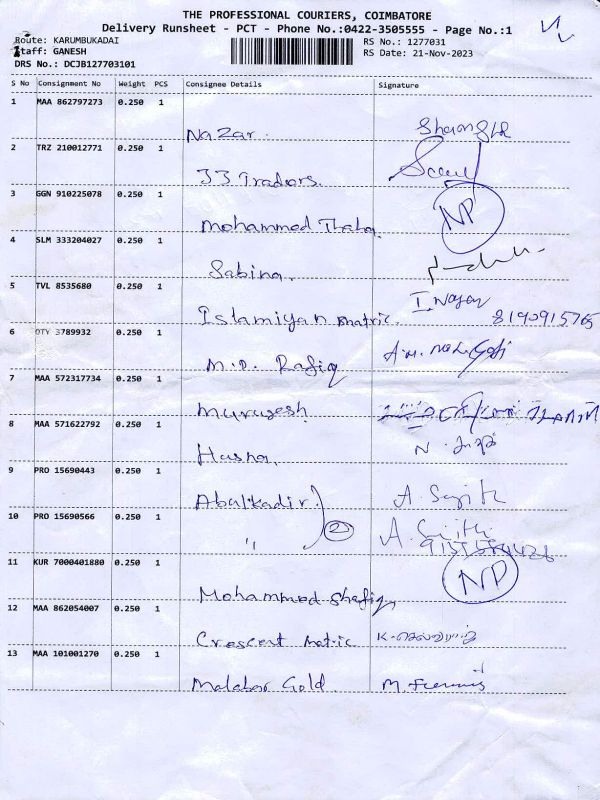 THE PROFESSIONAL COURIERS, COIMBATORE
Delivery Runsheet - PCT - Phone No.:0422-3505555 - Page No.:1
Route: KARUMBUKADAI RS No.: 1277031
Staff: GANESH RS Date: 21-Nov-2023
DRS No.: DCJB127703101
S No Consignment No Weight PCS Consignee Details Signature
1 MAA 862797273 0.250 1
Nazar.
2 TRZ 210012771 0.250 1
JJ Tradors.
3 GGN 910225078 0.250 1 NP
Mohammed Thaha
4 SLM 333204027 0.250 1
Sabina.
5 TVL 8535680 0.250 1
Islamiyan matric. 8190915765
6 OTY 3789932 0.250 1
M.D. Rafiq
7 MAA 572317734 0.250 1
Murugesh
8 MAA 571622792 0.250 1
Hasna.
9 PRO 15690443 0.250 1
Abalkadir. A. Sajith
10 PRO 15690566 0.250 1 2
" A.
11 KUR 7000401880 0.250 1 NP
Mohammed Shafiq
12 MAA 862054007 0.250 1
Crescent matric
13 MAA 101001270 0.250 1
Malabar Gold M.